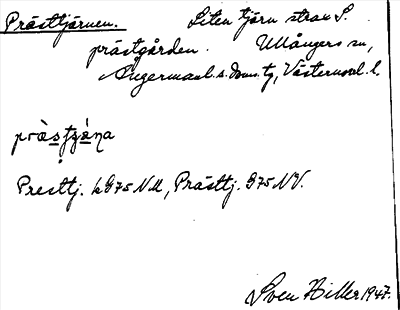 Prästtjärnen. Liten tjärn strax S.
prästgården. Ullångers sn,
Ångermanl. s. doms. tg, Västernorrl. l.
Presttj. k G75 NU, Prästtj. G75 NV.
Sven Hiller 1947.